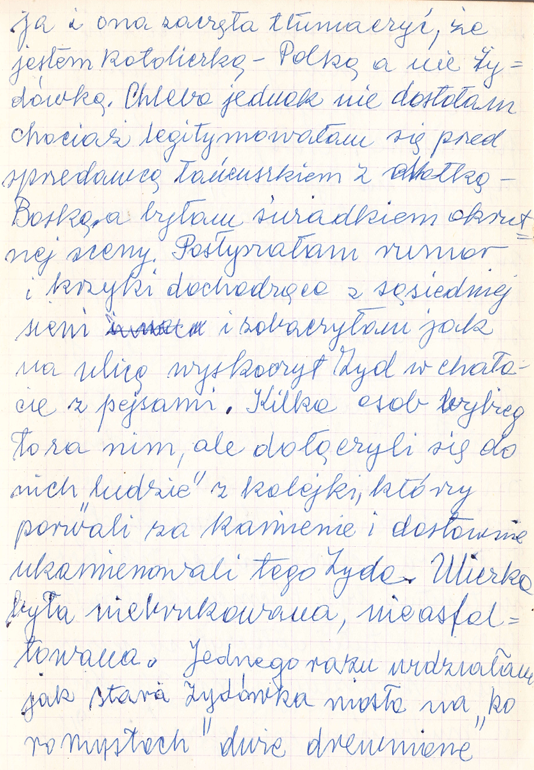 ja i ona zaczęła tłumaczyć, że
jestem katoliczką - Polką a nie Ży=
dówką. Chleba jednak nie dostałam
chociaż legitymowałam się przed
sprzedawcą łańcuszkiem z Matką -
Boską, a byłam świadkiem okrut=
nej sceny. Posłyszałam rumor
i krzyki dochodzące z sąsiedniej
sieni i zobaczyłam jak
na ulicę wyskoczył Żyd w chała-
cie z pejsami. Kilka osób wybieg
ło za nim, ale dołączyli się do
nich „ludzie" z kolejki, którzy
porwali za kamienie i dosłownie
ukamienowali tego Żyda. Uliczka
była niebrukowana, nieasfal=
towana. Jednego razu widziałam
jak stara Żydówka niosła na „ko
romysłach" dwie drewniane